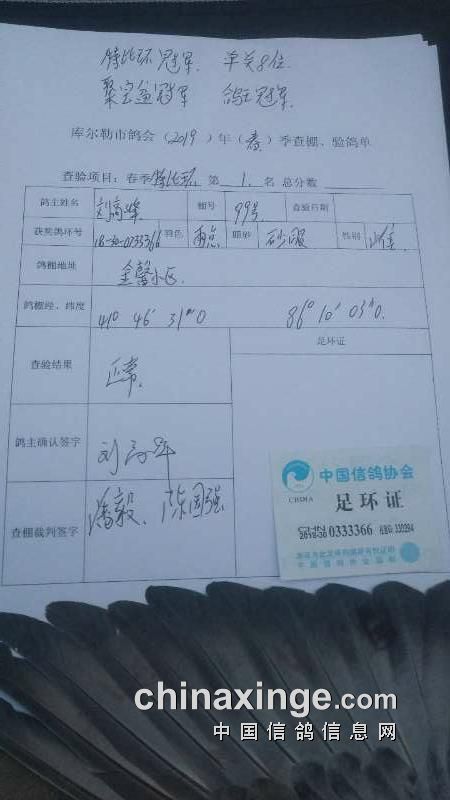 特比环冠军. 单关8位.
聚宝盆冠军 鸽王冠军.
库尔勒市鸽会（2019）年（春）季查棚、验鸽单
查验项目：春季特比环 第 1. 名 总分数
鸽主姓名 棚号 99号 查验日期
获奖鸽环号 18-30-0333366 羽色 雨点 眼砂 砂眼 性别 雄
鸽棚地址 金馨小区.
鸽棚经、纬度 41° 46′ 31″0 86° 10′ 03″0.
查验结果 正常. 足环证
鸽主确认签字
查棚裁判签字 潘毅、陈国强
中国信鸽协会
CRPA CHINA
足环证
0333366
中国信鸽协会监制
chinaxinge.com
中国信鸽信息网